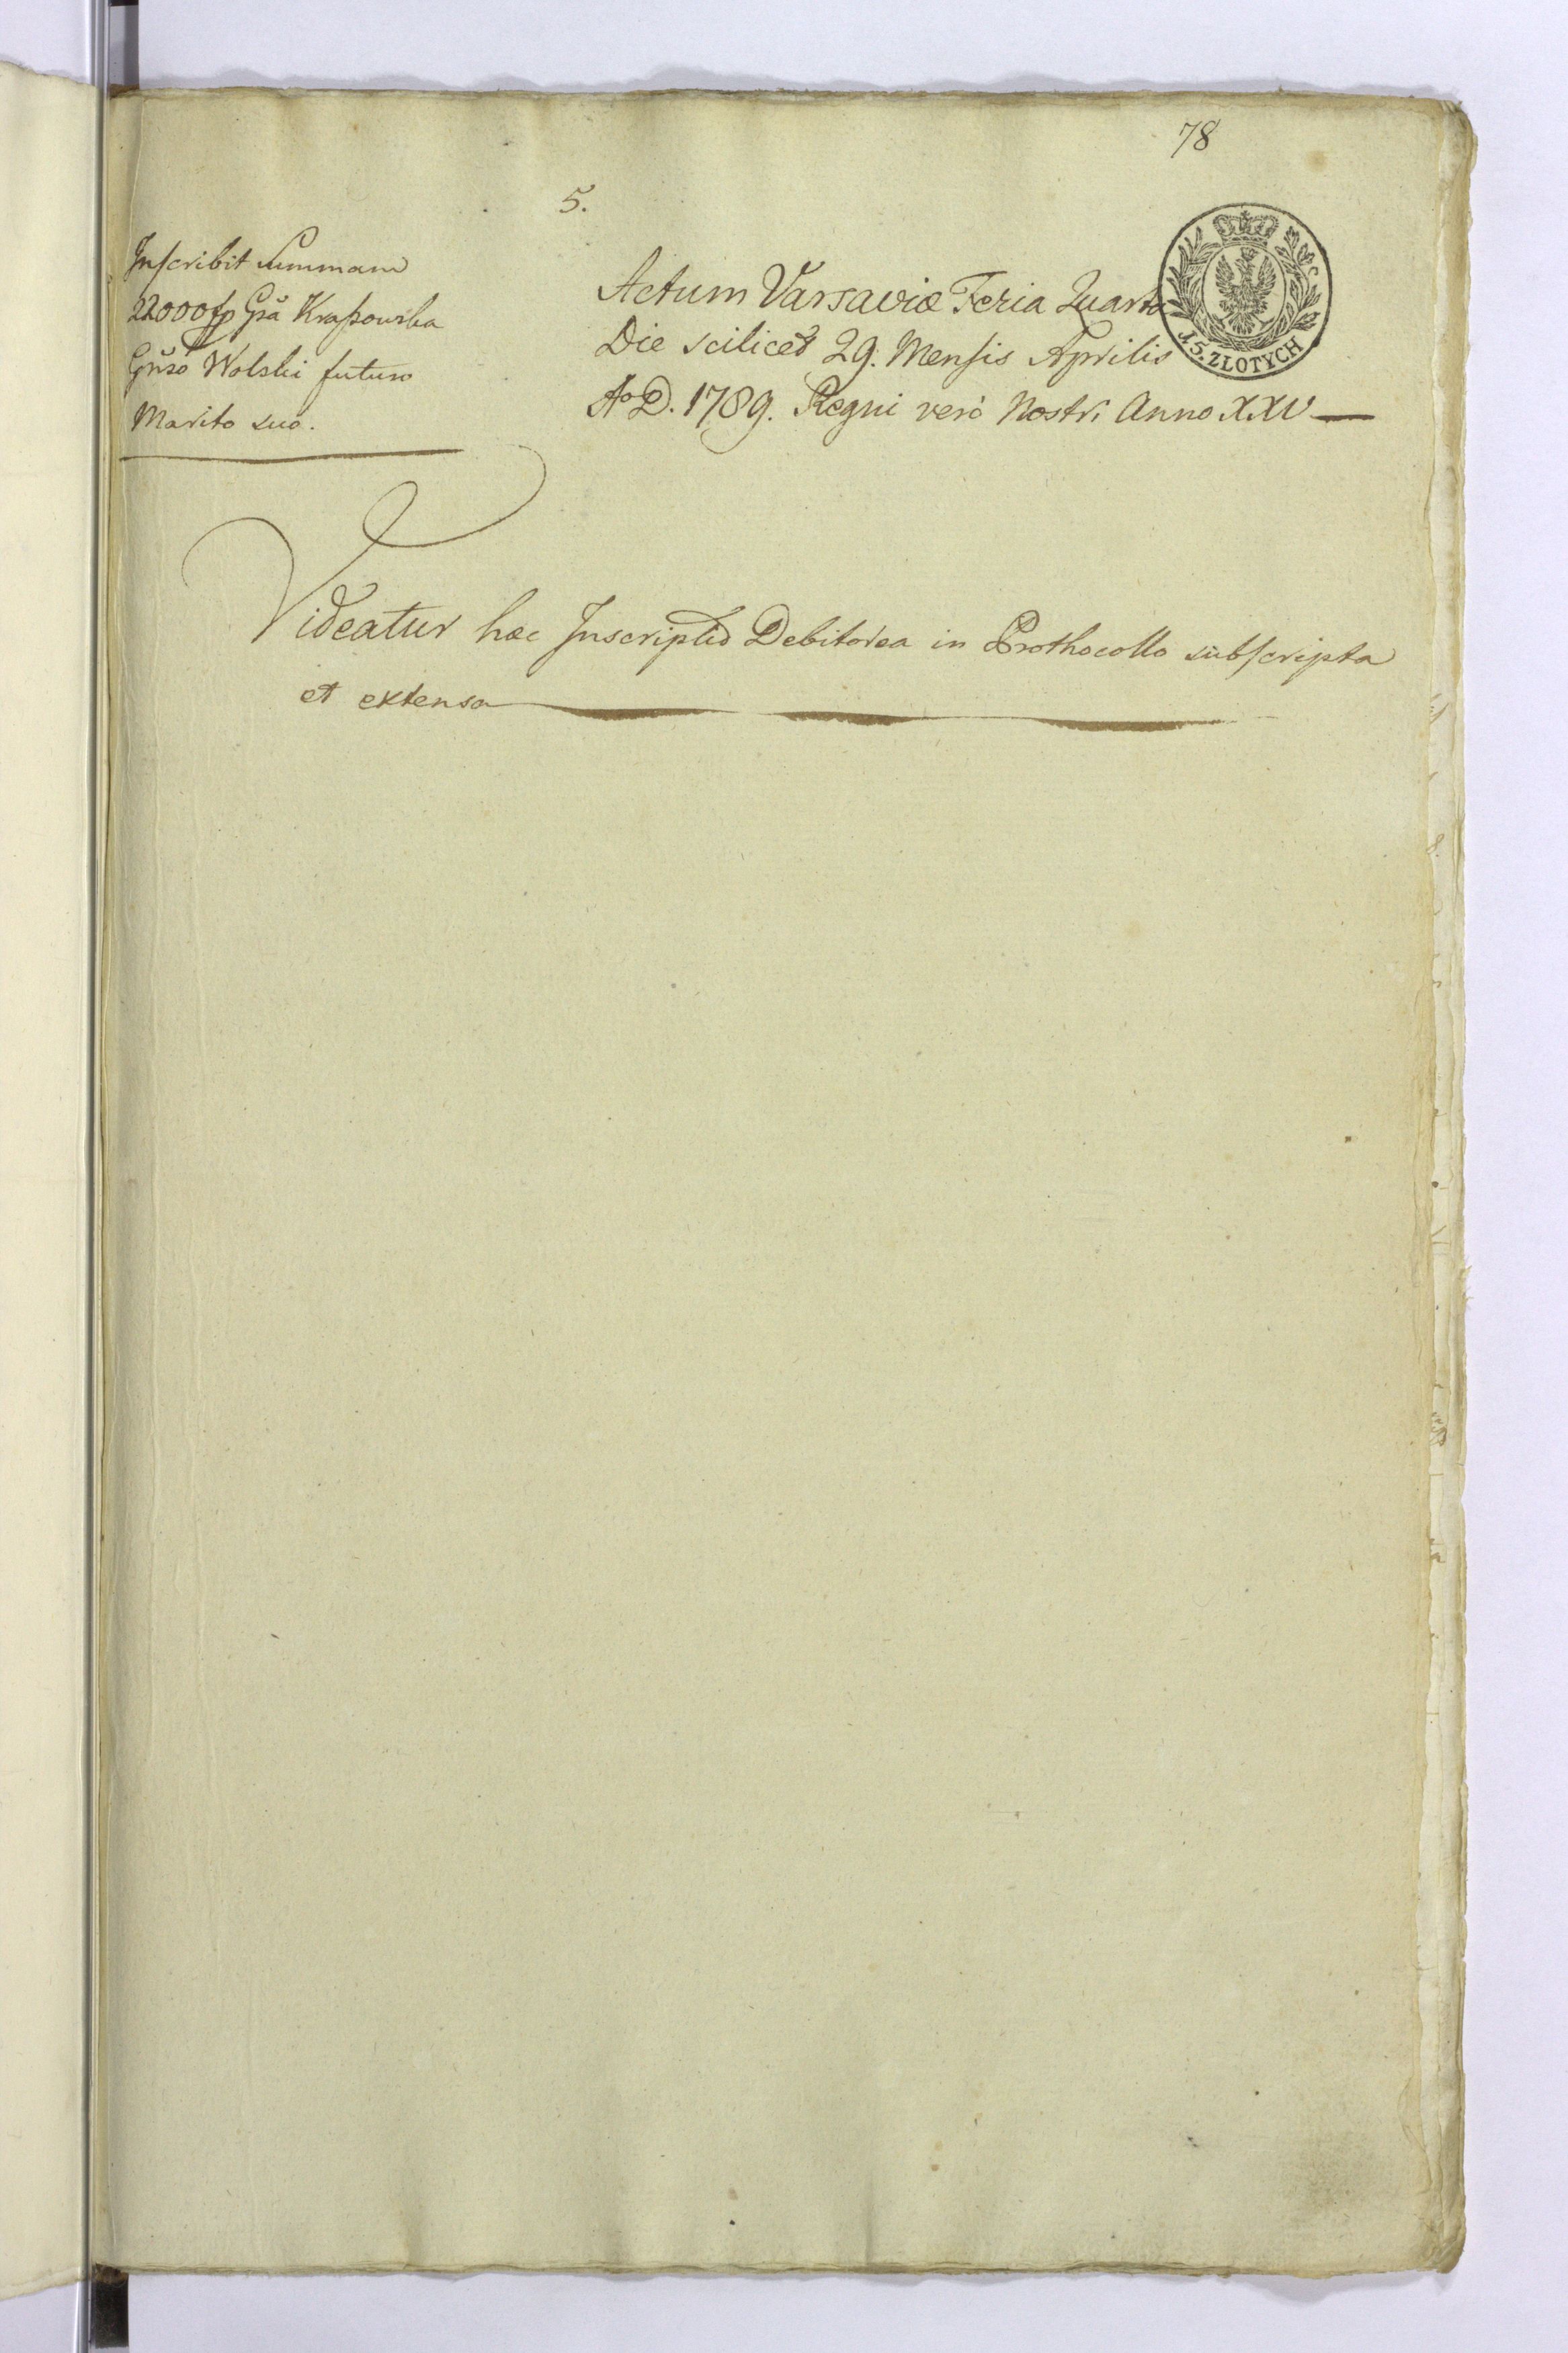 78
5.
Inscribit Summam
22000 fp Gsa Kraszowska
Gnso Wolski futuro
Marito suo.
Actum Varsaviæ Feria Quarta
Die scilicet 29. Mensis Aprilis
Ao D. 1789. Regni verò Nostri Anno XXV
15. ZLOTYCH
Videatur hæc Inscriptio Debitorea in Prothocollo subscripta
et extensa